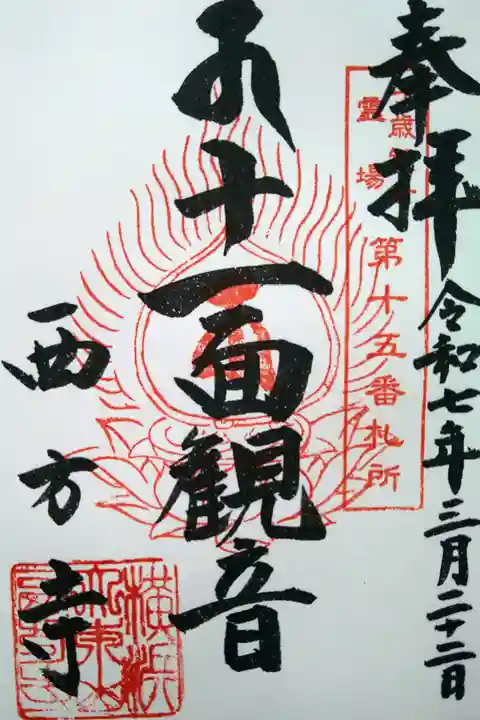 奉拝
令和七年三月二十二日
歳
霊場
第十五番札所
十一面観音
西方寺
横浜